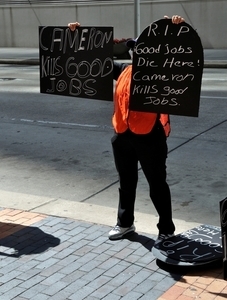 CAMERON
KILLS GOOD
JOBS
R.I.P
Good Jobs
Die Here!
Cameron
kills good
Jobs.